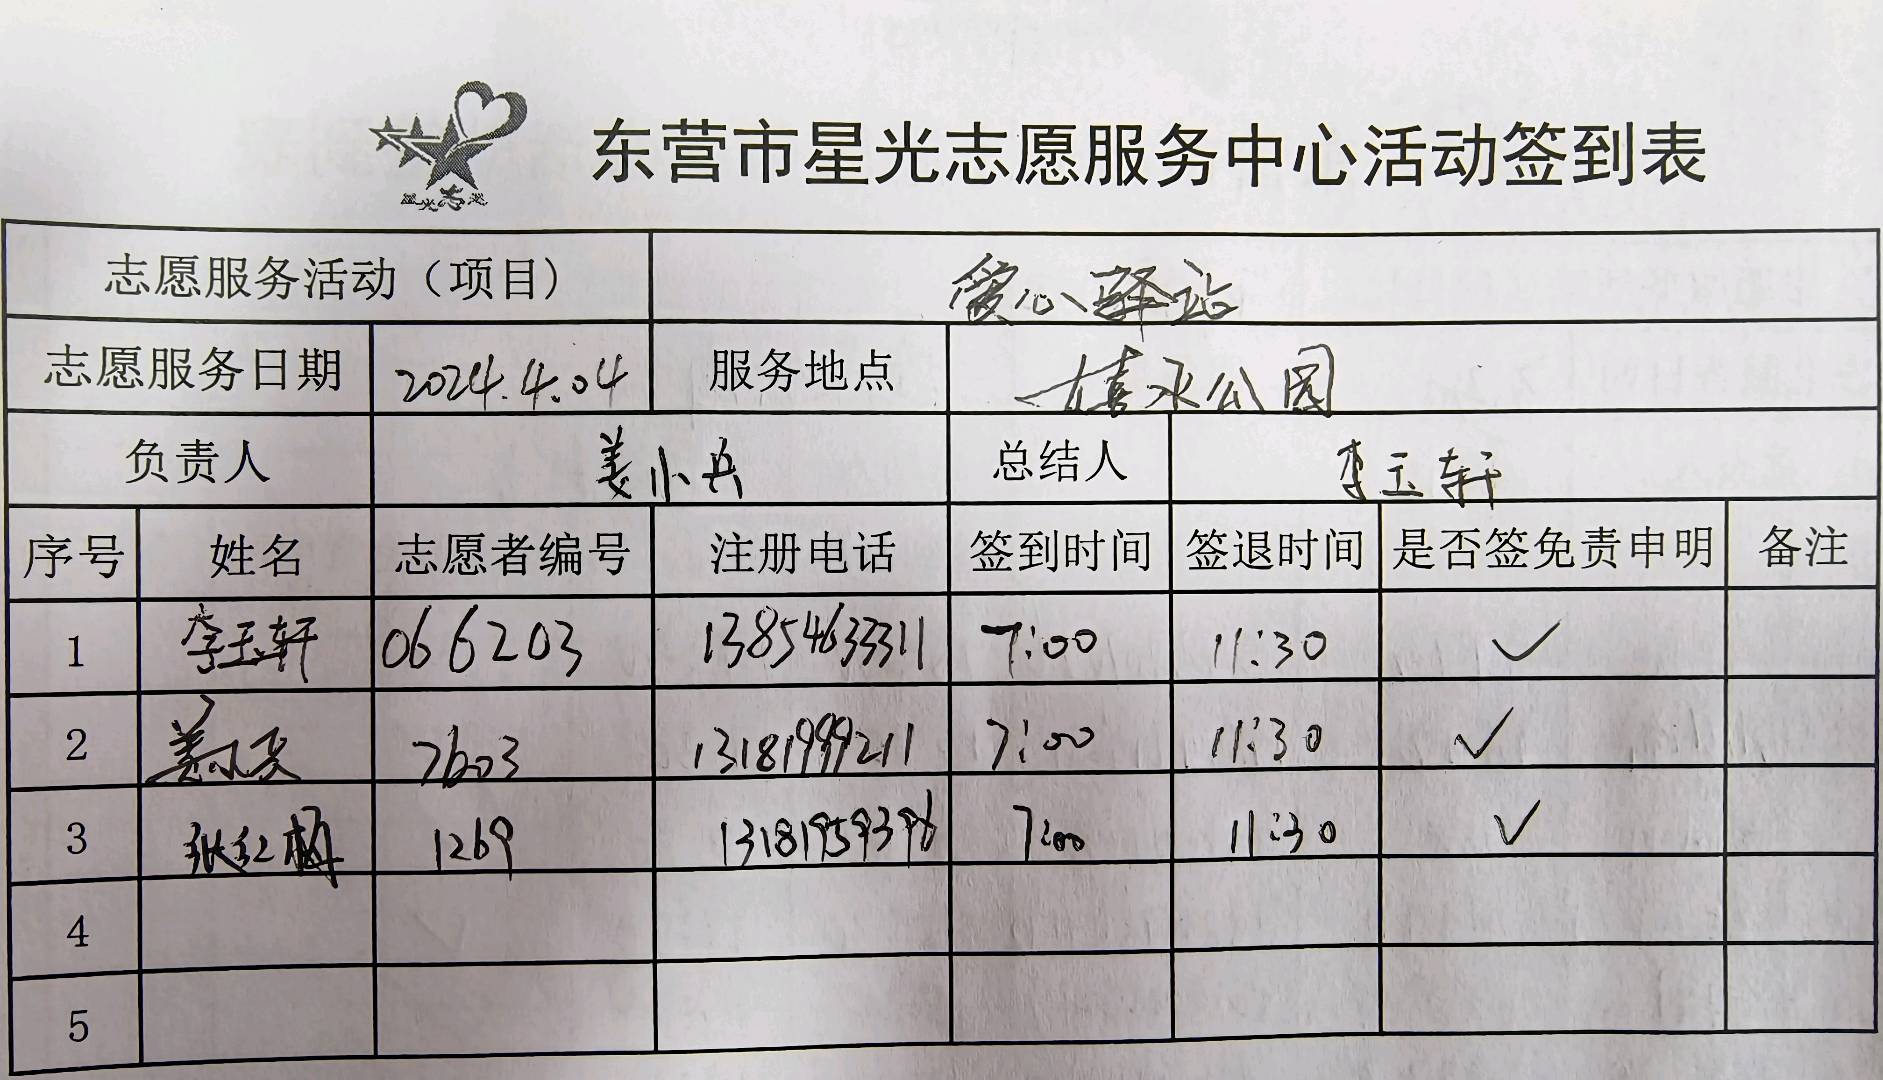 星光志愿
东营市星光志愿服务中心活动签到表
志愿服务活动（项目) 爱心驿站
志愿服务日期 2024.4.04 服务地点 公园
负责人 姜小兵 总结人 李玉轩
序号 姓名 志愿者编号 注册电话 签到时间 签退时间 是否签免责申明 备注
1 李玉轩 066203 13854633311 7:00 11:30 ✓
2 姜小兵 7603 13181999211 7:00 11:30 ✓
3 张红梅 1269 13181959398 7:00 11:30 ✓
4
5